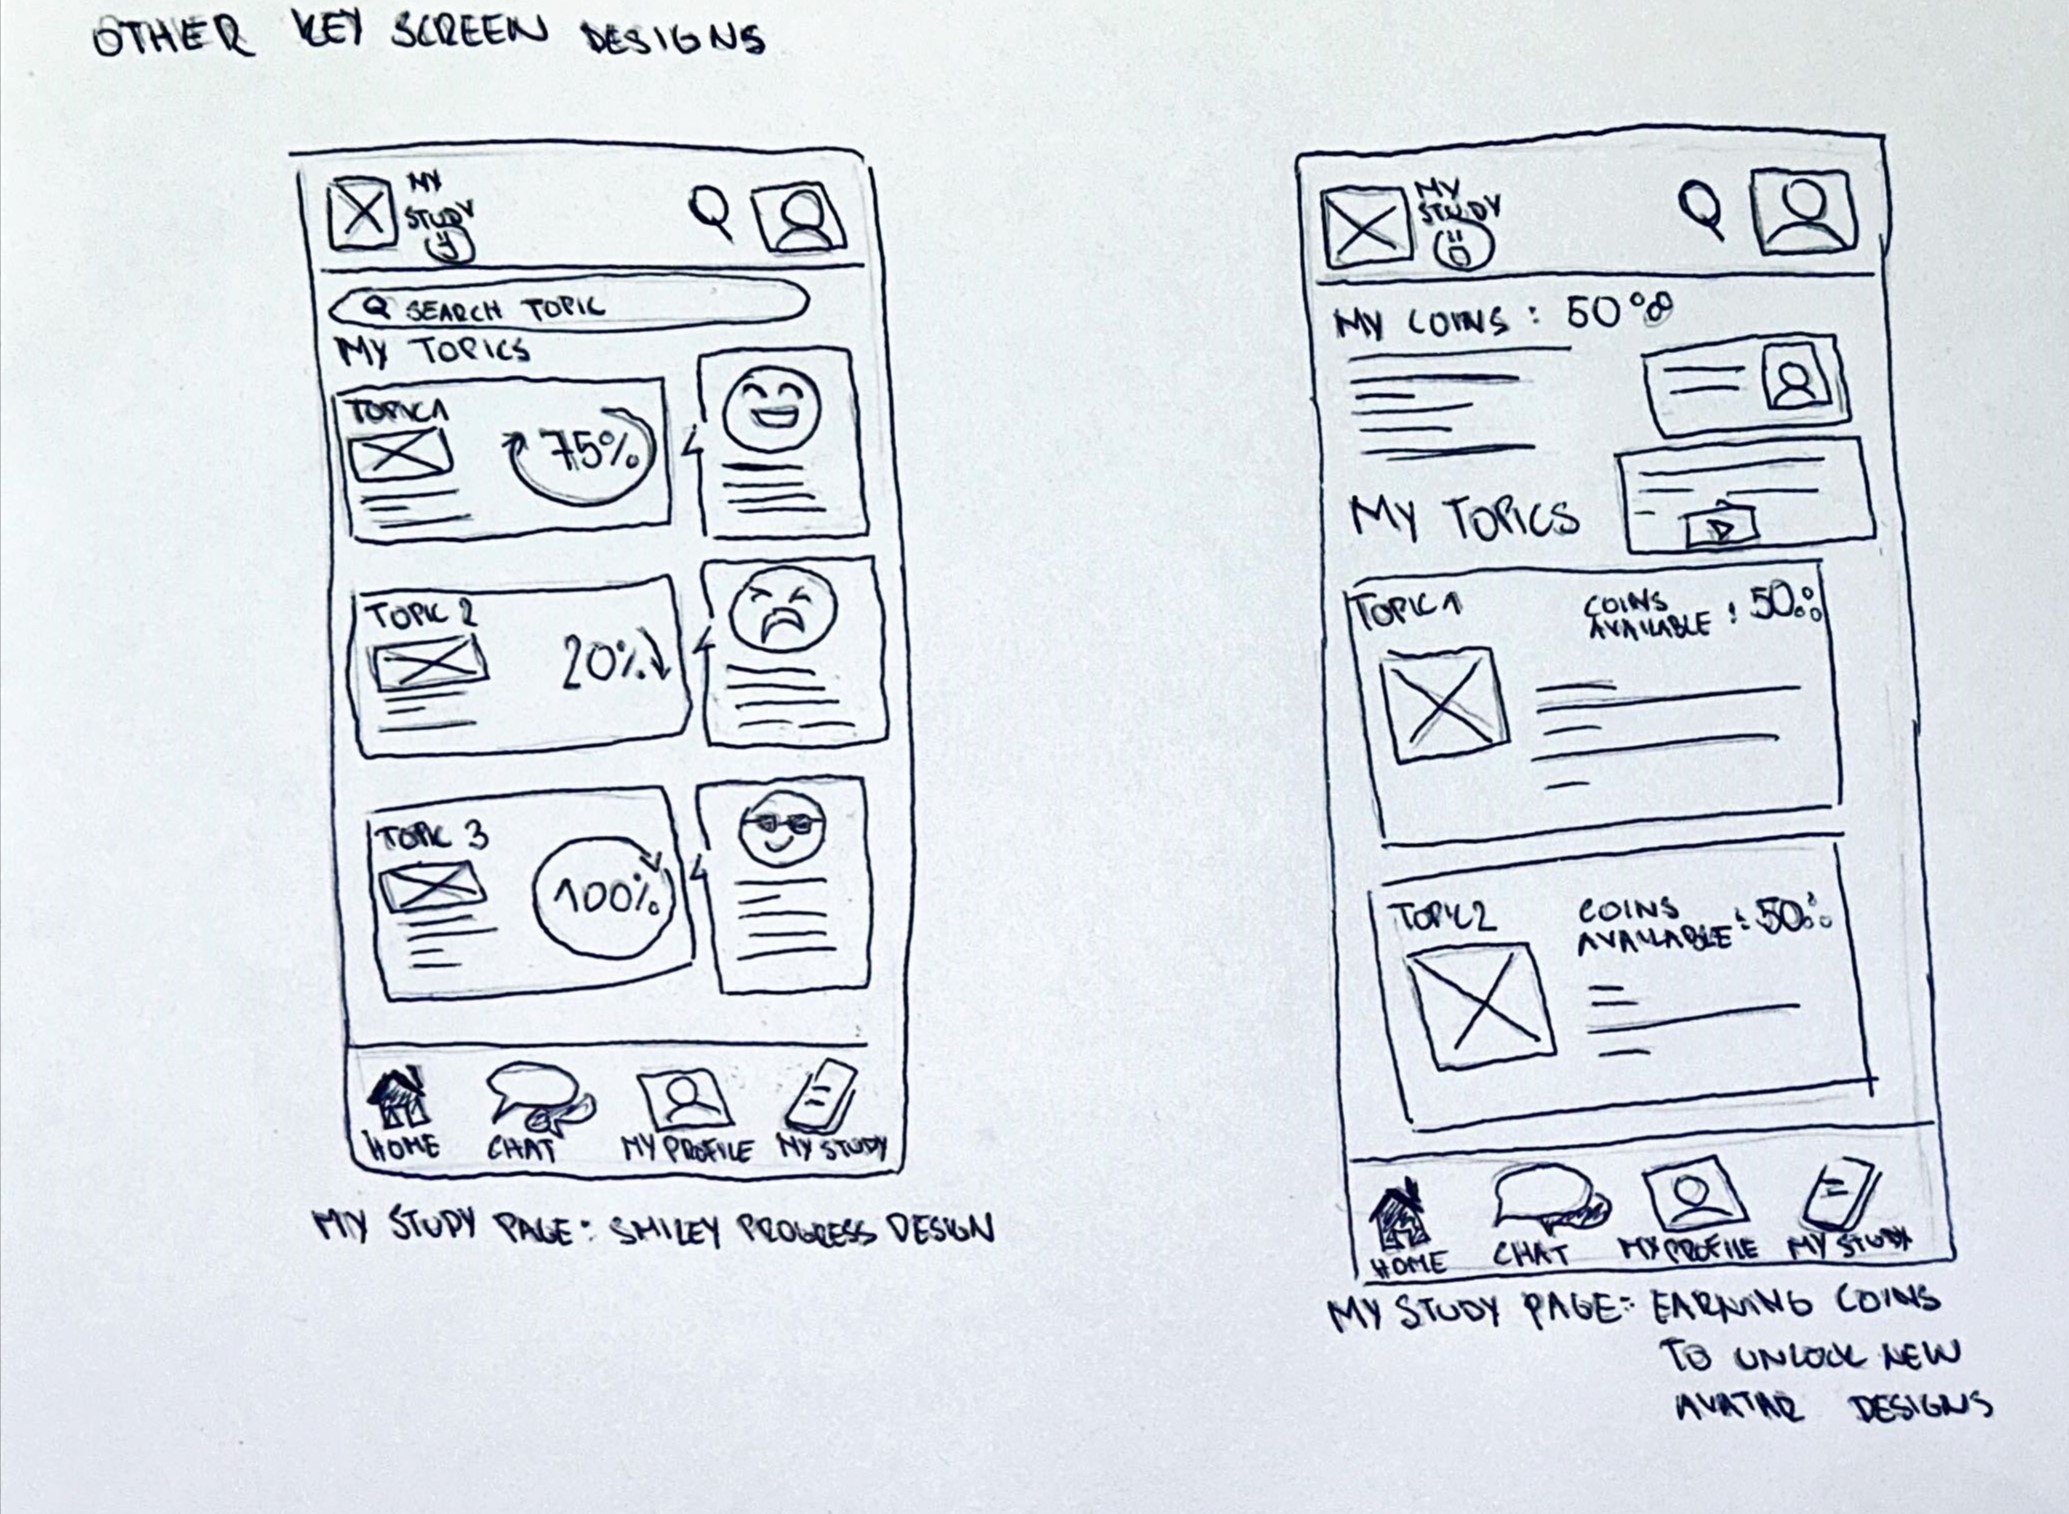 OTHER KEY SCREEN DESIGNS
MY
STUDY
SEARCH TOPIC
MY TOPICS
TOPIC 1
75%
TOPIC 2
20%
TOPIC 3
100%
HOME CHAT MY PROFILE MY STUDY
MY STUDY PAGE: SMILEY PROGRESS DESIGN
MY
STUDY
MY COINS: 50
MY TOPICS
TOPIC 1
COINS
AVAILABLE: 50
TOPIC 2
COINS
AVAILABLE: 50
HOME CHAT MY PROFILE MY STUDY
MY STUDY PAGE: EARNING COINS
TO UNLOCK NEW
AVATAR DESIGNS